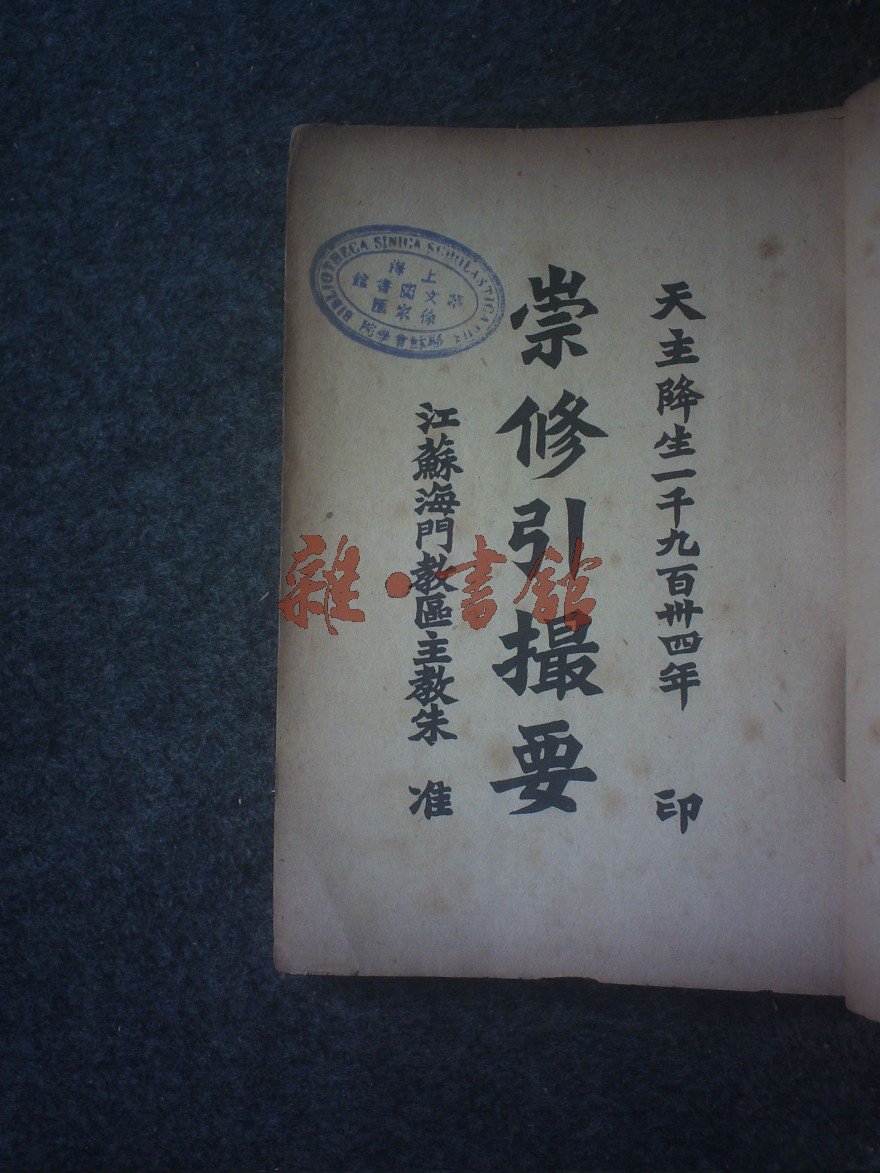 天主降生一千九百卅四年 印
崇修引撮要
江蘇海門教區主教朱 准
BIBLIOTHECA SINICA SCHOLASTICA
上海
文閣書館
徐家匯
耶穌會學院
雜·書館